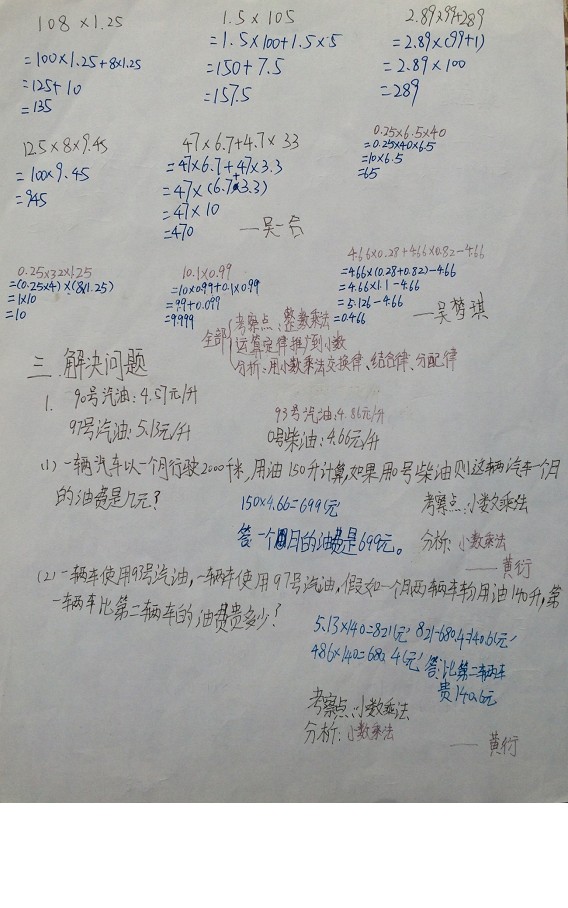 108 × 1.25
=100×1.25+8×1.25
=125+10
=135
1.5 × 105
=1.5×100+1.5×5
=150+7.5
=157.5
2.89×99+289
=2.89×(99+1)
=2.89×100
=289
12.5×8×9.45
=100×9.45
=945
47×6.7+4.7×33
=47×6.7+47×3.3
=47×(6.7+3.3)
=47×10
=470
—吴一合
0.25×6.5×40
=0.25×40×6.5
=10×6.5
=65
0.25×32×1.25
=(0.25×4)×(8×1.25)
=1×10
=10
10.1×0.99
=10×0.99+0.1×0.99
=9.9+0.099
=9.999
4.66×0.28+4.66×0.82-4.66
=4.66×(0.28+0.82)-4.66
=4.66×1.1-4.66
=5.126-4.66
=0.466
—吴梦琪
全部
考察点:整数乘法
运算定律推广到小数
分析:用小数乘法交换律、结合律、分配律
三.解决问题
1. 90号汽油:4.57元/升
93号汽油:4.86元/升
97号汽油:5.13元/升
0号柴油:4.66元/升
(1)一辆汽车以一个月行驶2000千米,用油150升计算,如果用0号柴油则这辆汽车一个月
的油费是几元?
150×4.66=699(元)
答:一个月的油费是699元。
考察点:小数乘法
分析:小数乘法
——黄衍
(2)一辆车使用93号汽油,一辆车使用97号汽油,假如一个月两辆车均用油140升,第
一辆车比第二辆车的油费贵多少?
5.13×140=821(元) 821-680.4=140.6(元)
4.86×140=680.4(元) 答:比第二辆车
贵140.6元
考察点:小数乘法
分析:小数乘法
——黄衍